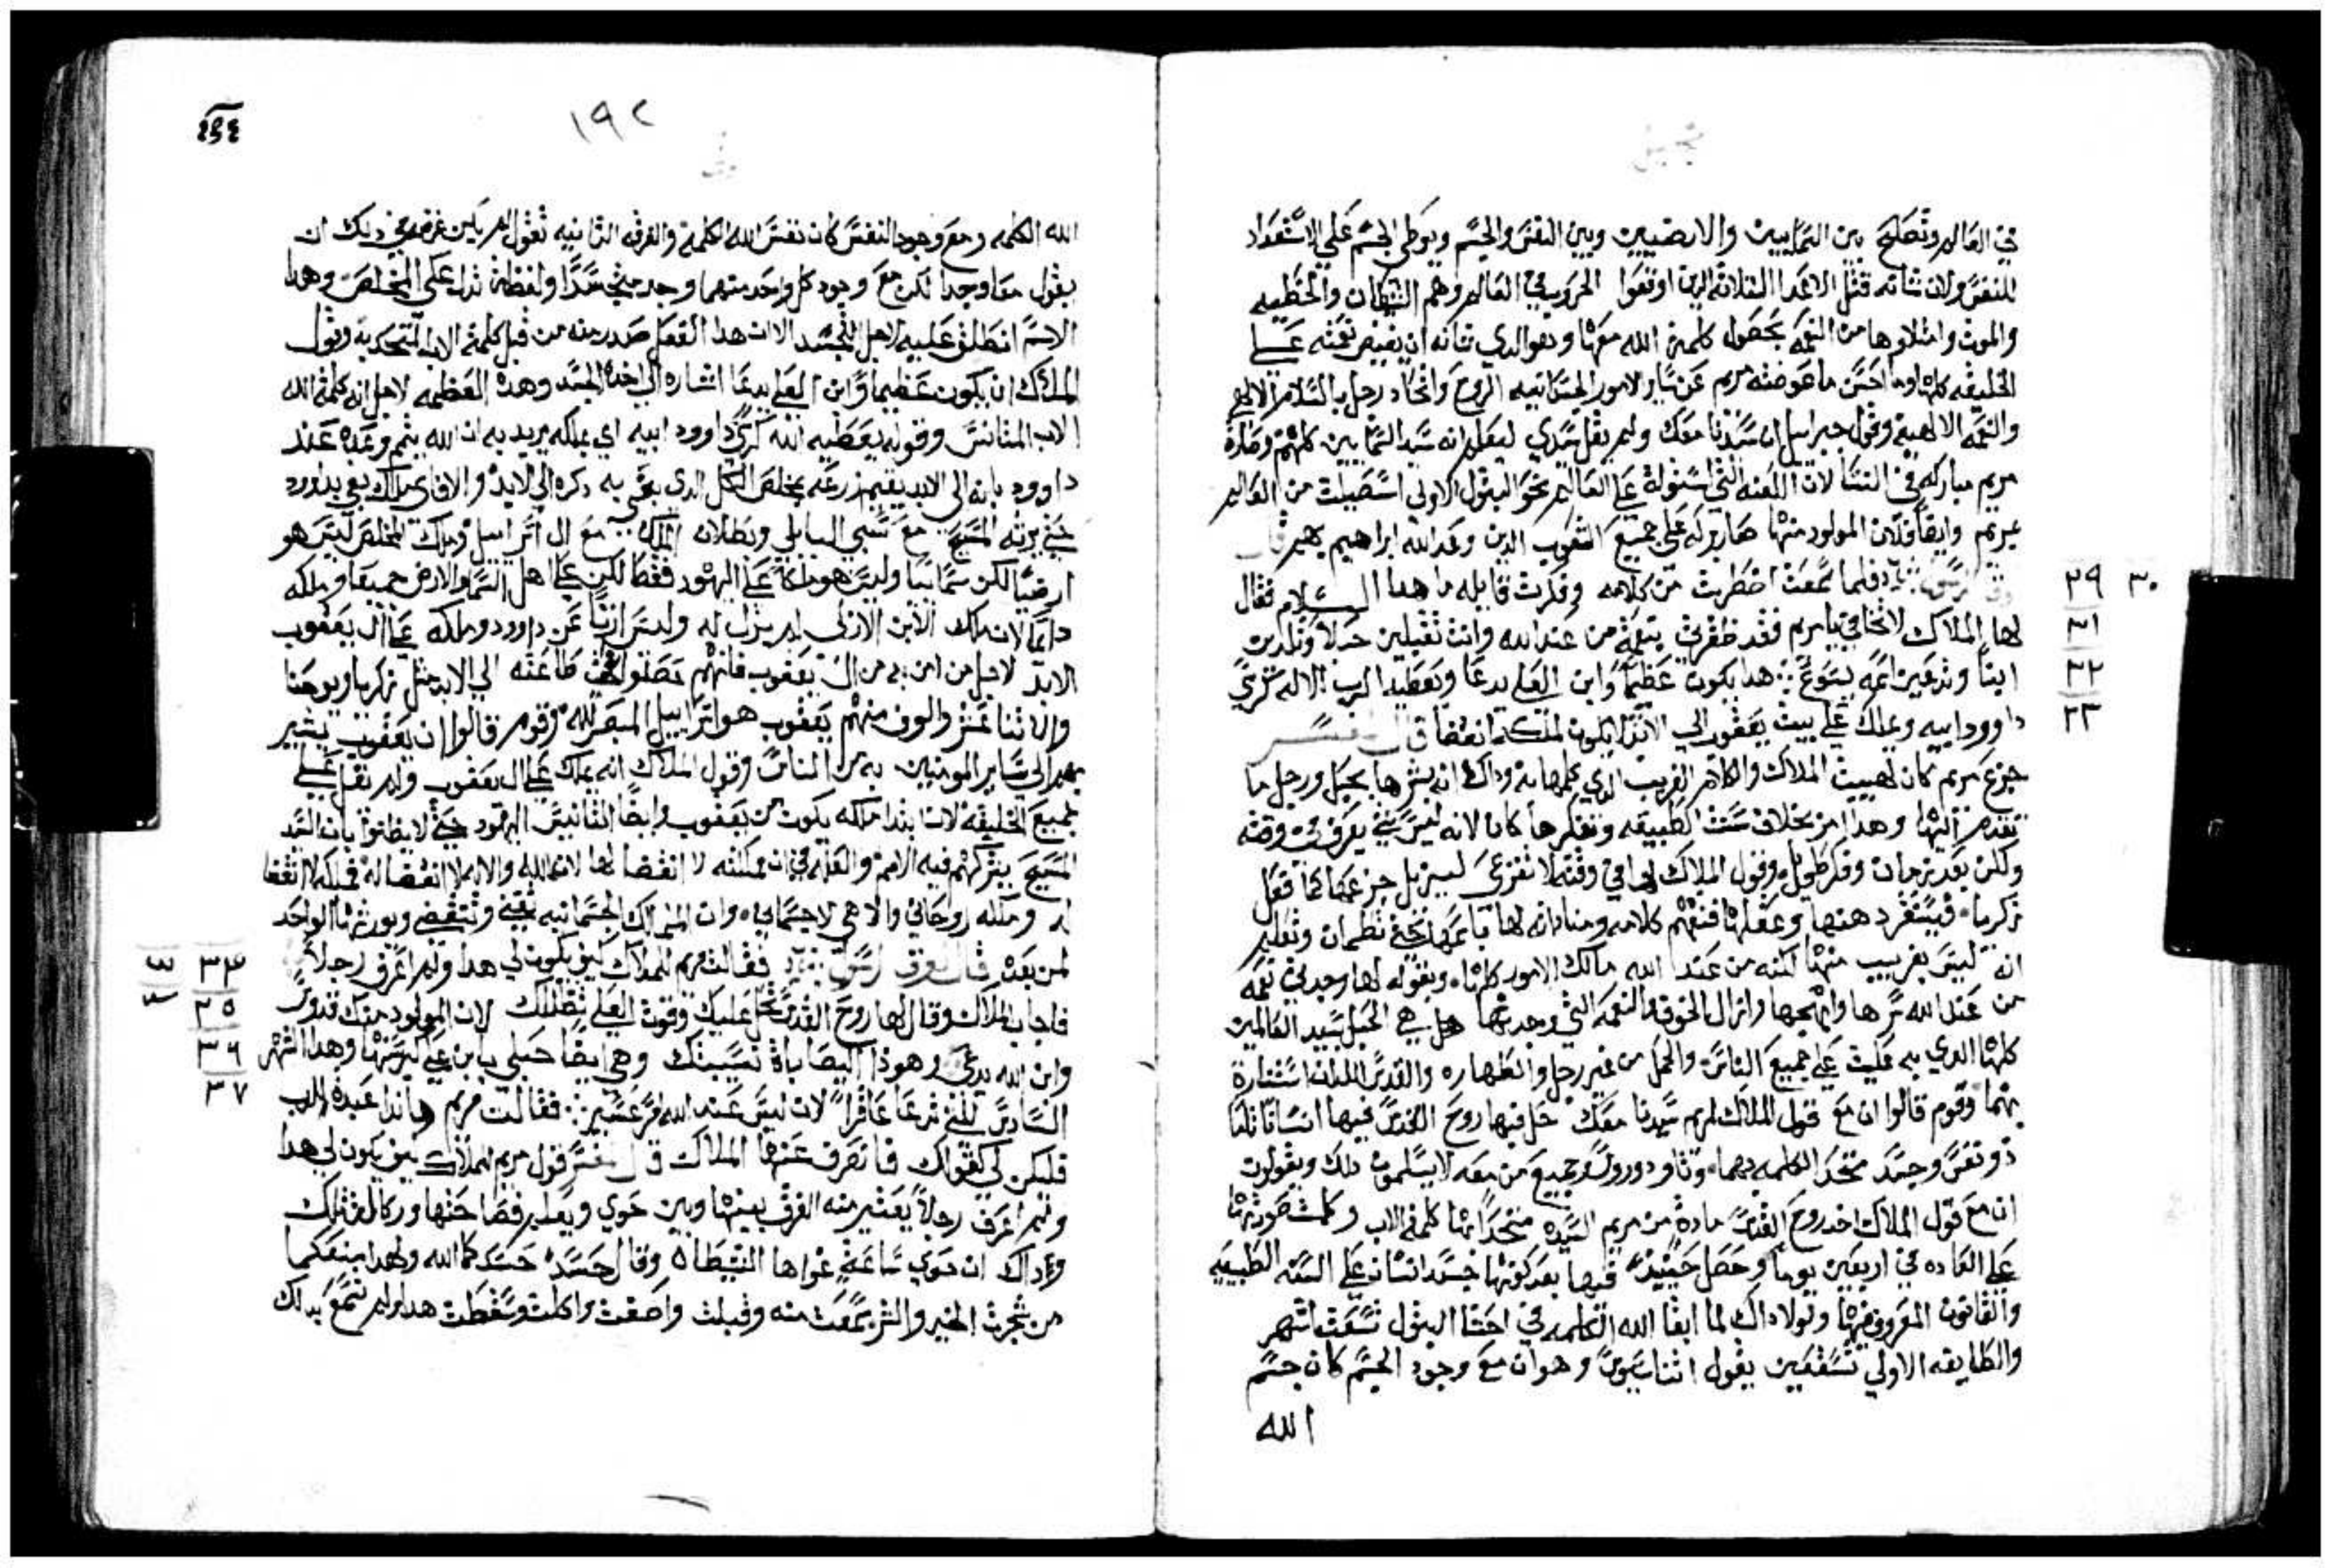 في العالم وتصلح بين السماييين والارضيين وبين النفس والجسم ويوطي الجسم علي الاستعداد
للنفس ولان شانه قتل الاعدا الثلاثة الذين اوقعوا الحروب في العالم وهم الشيطان والخطيه
والموت وامتلاوها من النعمه بحصول كلمة الله معها وهو الذي شانه ان يفيض نعمته علي
الخليقه كلها وما احسن ما عوضته مريم عن الامور الجسمانيه الروح واتحاد رجل بالسلام الالاهي
والنعمه الالاهية وقول جبراييل ان سيدنا معك ولم يقل سيدي ليعلم انه سيد السماييين كلهم وصارة
مريم مباركه في النسا لان اللعنه التي استولة علي العالم نحو البتول الاولي استصيلت من العالم
بمريم وايضا فلان المولود منها صار بركه علي جميع الشعوب الدين وعد الله ابراهيم بهم قال
فلما سمعت اضطربت من كلامه وفكرت قايله ما هدا السلام فقال
٣٠ ٢٩
لها الملاك لا تخافي يا مريم فقد ظفرتي بنعمة من عند الله وانت تقبلين حبلا وتلدين
٣١
ابنا وتدعين اسمه يسوع هدا يكون عظيما وابن العلي يدعا ويعطيه الرب الاله كرسي
٣٢
داوود ابيه ويملك علي بيت يعقوب الي الابد ولا يكون لملكه انقضا قال المفسر
٣٣
جزع مريم كان لهيبت الملاك والكلام الغريب الدي كلمها به وداك انه بشرها بحبل ورجل ما
تقدم اليها وهدا من بخلاف سنت الطبيعه وتفكرها كانا لانه ليس شي يعرف في وقته
ولكن بعد زمان وفكر طويل وقول الملاك لها في وقته لا تفزعي ليزيل جزعها كما فعل
زكريا فيستقر دهنها وعقلها فتفهم كلامه ومناداته لها باسمها لكي تطمان وتعلم
انه ليس بغريب منها لكنه من عند الله مالك الامور كلها وبقوله لها وجدتي نعمه
من عند الله سرها وابهجها وازال الخوف والنعمه التي وجدتها هل هي الحبل بسيد العالمين
كلها الدي به عليت علي جميع الناس والحمل من غير رجل والطهاره والقدس اللدان استنارة
بهما وقوم قالوا ان مع قول الملاك لمريم سيدنا معك حل فيها روح القدس فيها انسانا تاما
دو نفس وجسد متحد الكلمه بهما وتاودوروس وجميع من معه لا يسلمون دلك ويقولون
ان مع قول الملاك اخد روح القدس مادة من مريم السيده متحدا بها كلمة الاب وكلت صورتها
علي العاده في اربعين يوما وحصل حينيد فيها بعد كونها جسد انسان علي السنه الطبيعيه
والقانون المعروف فيها ولولا داك لما ابقا الله الكلمه في احشا البتول تسعت اشهر
والطايفه الاولي تستعين بقول اثناسيوس وهو ان مع وجود الجسم كان جسم
الله
١٩٢
الله الكلمه ومع وجود النفس كان نفس الله الكلمة والفرقه التانيه تقول امر بين غرضه في دلك ان
يقول معا وجدا لكن مع وجود كل واحد منهما وجد متجسدا ولفظة تدل علي المخلص وهدا
الاسم انطلق عليه لاجل التجسد الا ان هدا الفعل صدر منه من قبل كلمة الاب المتحد به وقول
الملاك ان يكون عظيما وابن العلي يدعا اشاره الي اخده الجسد وهده العظمه لاجل انه كلمة الله
الاب المتانس وقوله يعطيه الله كرسي داوود ابيه اي يملكه يريد به ان الله يتم وعده عند
داوود بانه الي الابد يقيم زرعه بمخلص الكل الدي بقي به دكره الي الابد والا فاي ملك بقي بداوود
حتي يرته المسيح مع سبي البابلي وبطلان الملك مع ال اسراييل وملك المخلص ليس هو
ارضيا لكن سماييا وليس هو ملكا علي اليهود فقط لكن علي اهل السما والارض جميعا وملكه
دايما لان ملك الابن الازلي لم يزل له وليس ارثا عن داوود وملكه علي ال يعقوب
الابد لاجل من امن به من ال يعقوب فانهم حصلوا تحت طاعته الي الابد مثل زكريا ويوحنا
والاثنا عشر والوف منهم يعقوب هو اسراييل المبصر لله وقوم قالوا ان يعقوب يشير
بهدا الي ساير المومنين به من الناس وقول الملاك انه يملك علي ال يعقوب ولم يقل علي
جميع الخليقه لان بدا ملكه يكون من يعقوب وايضا لتانيس اليهود حتي لا يظنوا بان السيد
المسيح يشركهم فيه الامم والعله في ان مملكته لا انقضا لها لانها لله والاله لا انقضا له فملكه لا انقضا
له وملكه روحاني والاهي لا جسماني وان الممالك الجسمانيه تفني وتنقضي ويورثها الواحد
لمن بعده قال لوقا الرسول فقالت مريم للملاك كيف يكون لي هدا ولم اعرف رجلا
٣٤
فاجاب الملاك وقال لها روح القدس تحل عليك وقوت العلي تظللك لان المولود منك قدوس
٣٥
وابن الله يدعي وهودا اليصابات نسيبتك وهي ايضا حبلي بابن علي كبر سنها وهدا الشهر
٣٦
السادس للتي تدعا عاقرا لان ليس عند الله امر عسير فقالت مريم ها اندا عبدة الرب
٣٧
فليكن لي كقولك فانصرف عنها الملاك قال المفسر قول مريم للملاك كيف يكون لي هدا
ولم اعرف رجلا يعتبر منه الفرق بينها وبين حوي ويعلم فصاحتها وركالة تلك
وداك ان حوي ساعة غواها الشيطان وقال حسدكما الله ولهدا منعكما
من شجرت الخير والشر سمعت منه وقبلت واصغت واكلت وسقطت هدا ولم تسمع بداك